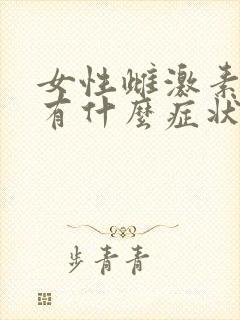 女性雌激素
有什麼症狀
步青青